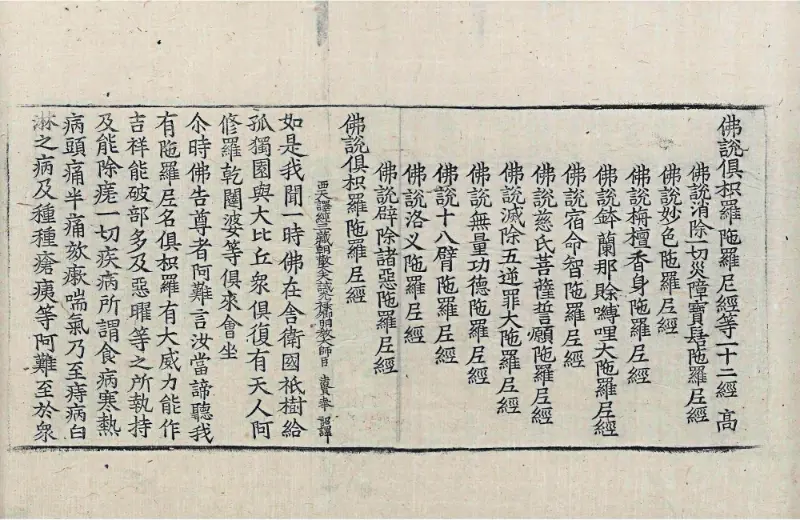 佛說俱枳羅陁羅尼經等一十二經 高
佛說消除一切災障寶髻陁羅尼經
佛說妙色陁羅尼經
佛說栴檀香身陁羅尼經
佛說鉢蘭那賒嚩哩大陁羅尼經
佛說宿命智陁羅尼經
佛說慈氏菩薩誓願陁羅尼經
佛說滅除五逆罪大陁羅尼經
佛說無量功德陁羅尼經
佛說十八臂陁羅尼經
佛說洛叉陁羅尼經
佛說辟除諸惡陁羅尼經
佛說俱枳羅陁羅尼經
西天譯經三藏朝散大夫試光祿卿明教大師臣 法賢奉 詔譯
如是我聞一時佛在舍衛國祇樹給
孤獨園與大比丘衆俱復有天人阿
修羅乾闥婆等俱來會坐
尒時佛告尊者阿難言汝當諦聽我
有陁羅尼名俱枳羅有大威力能作
吉祥能破部多及惡曜等之所執持
及能除瘧一切疾病所謂食病寒熱
病頭痛半痛欬嗽喘氣乃至痔病白
淋之病及種種瘡痍等阿難至於衆